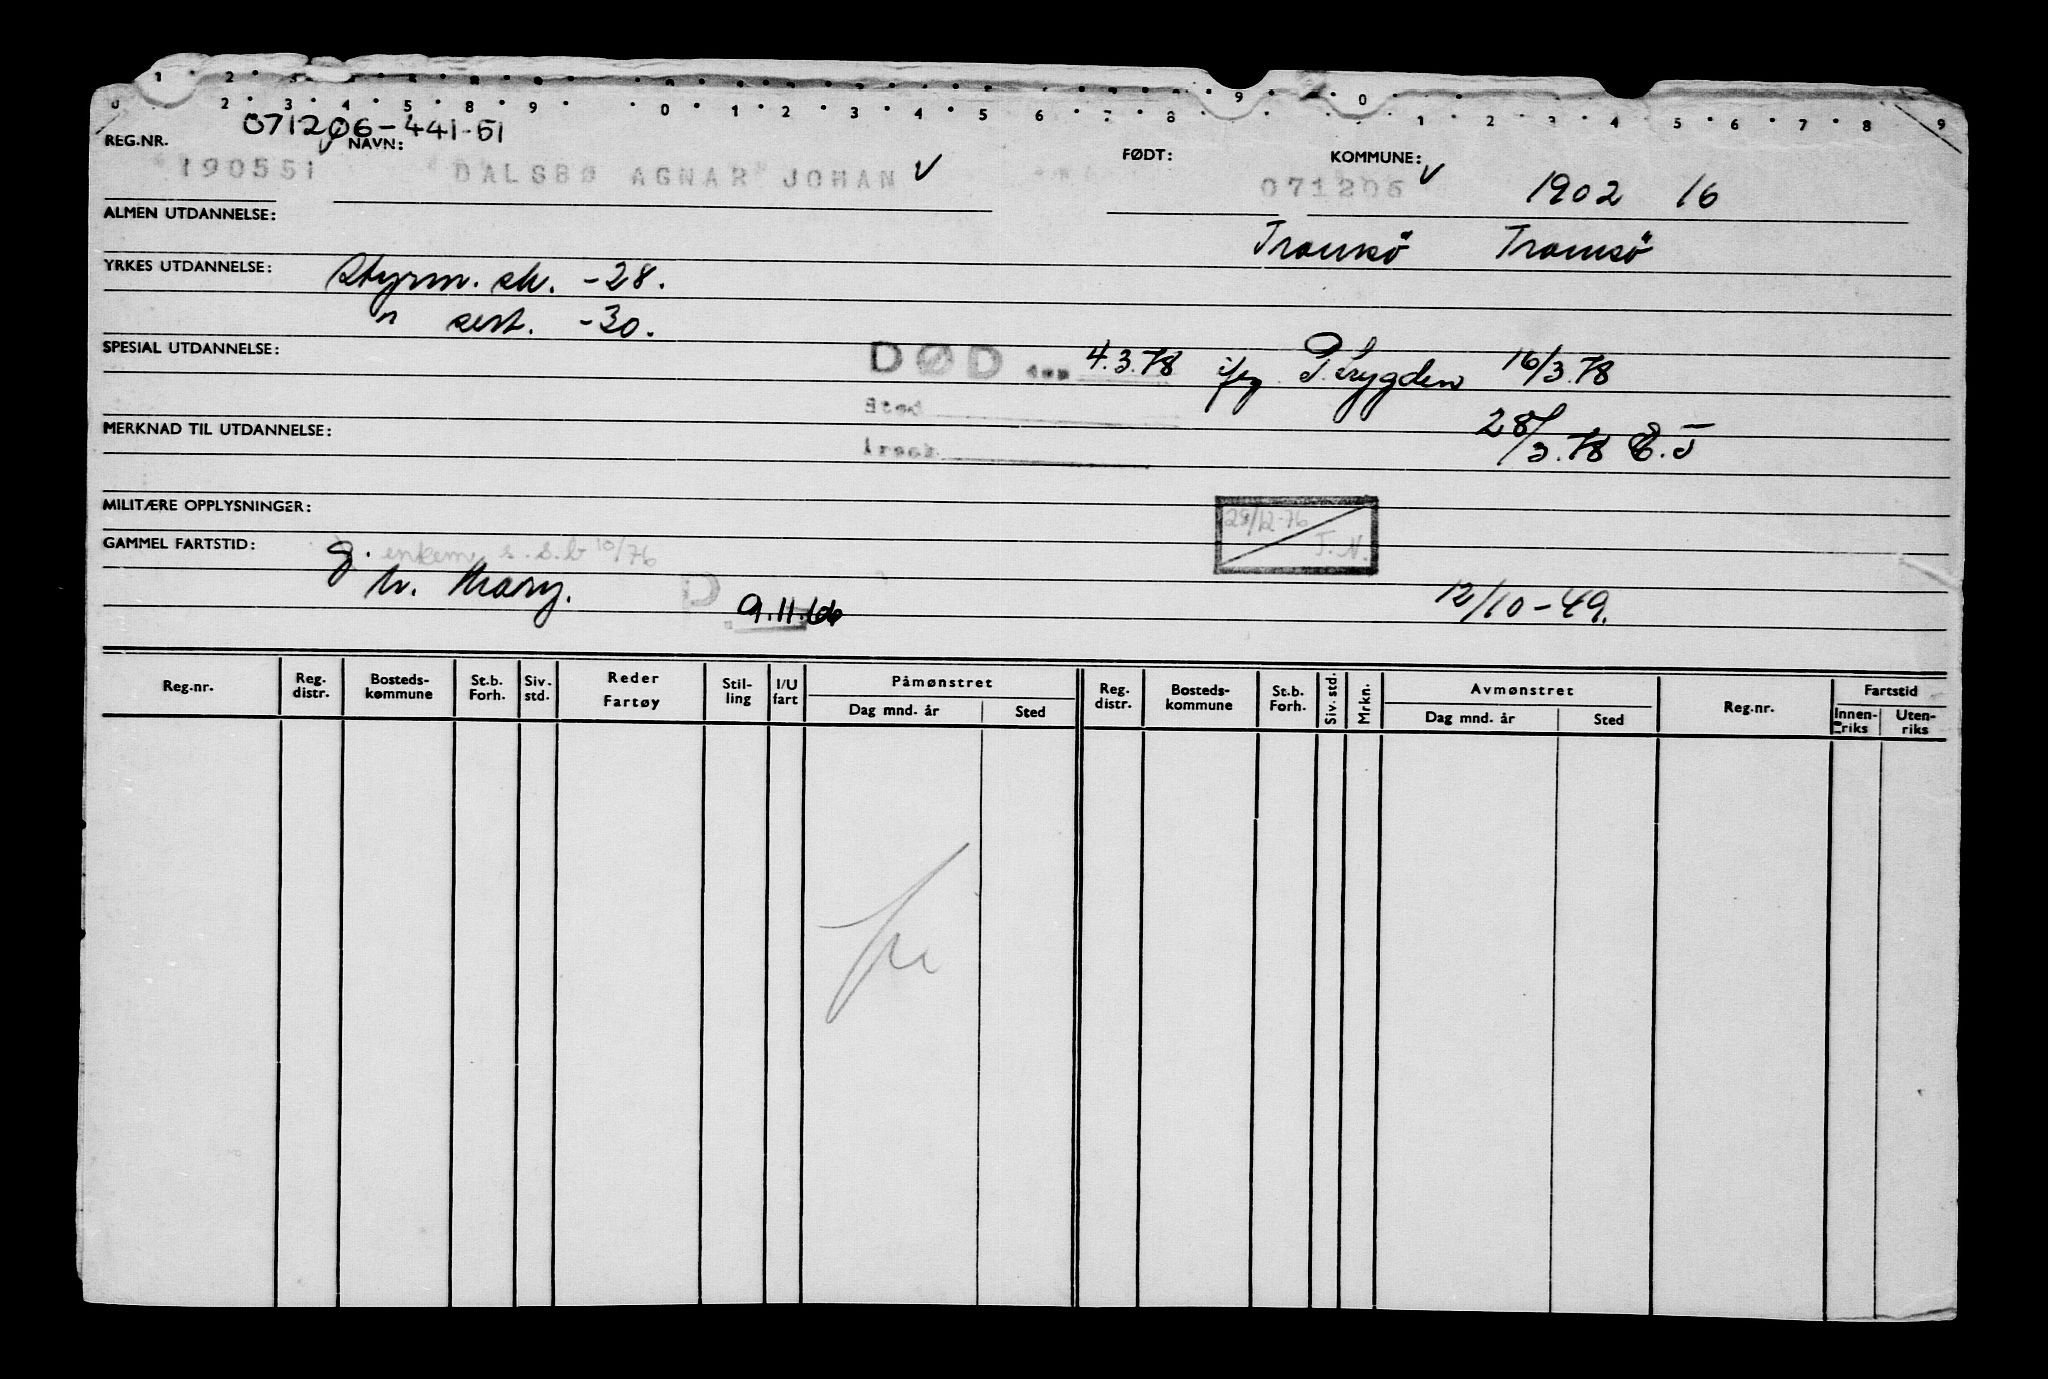 1 2 3 5 8 9 0
0 2 3 4 5 8 9 0 1 2 3 4 5 6 7 8 1 2 3 4 5 6 7 8 9
071206-441-51
REG.NR. NAVN: FØDT: KOMMUNE:
190551 DALSBØ AGNAR JOHAN 071206 1902 16
ALMEN UTDANNELSE: Tromsö Tromsö
YRKES UTDANNELSE: Styrm. sk. -28.
" sert. -30.
SPESIAL UTDANNELSE: DØD den 4.3.78 ifg P. Trygden 16/3.78
Sted
MERKNAD TIL UTDANNELSE: Årsak 28/3.78 E.T
MILITÆRE OPPLYSNINGER: 29/12-76 T.N.
GAMMEL FARTSTID: g. enkem. s.s.b 10/76
m. Mary. D 9.11.66 12/10-49.
Reg.nr. Reg. distr. Bosteds-kommune St.b. Forh. Siv. std. Reder Fartøy Stil-ling I/U fart Påmønstret Dag mnd. år Sted Reg. distr. Bosteds-kommune St.b. Forh. Siv. std. Mrkn. Avmønstret Dag mnd. år Sted Reg.nr. Fartstid Innen-riks Uten-riks